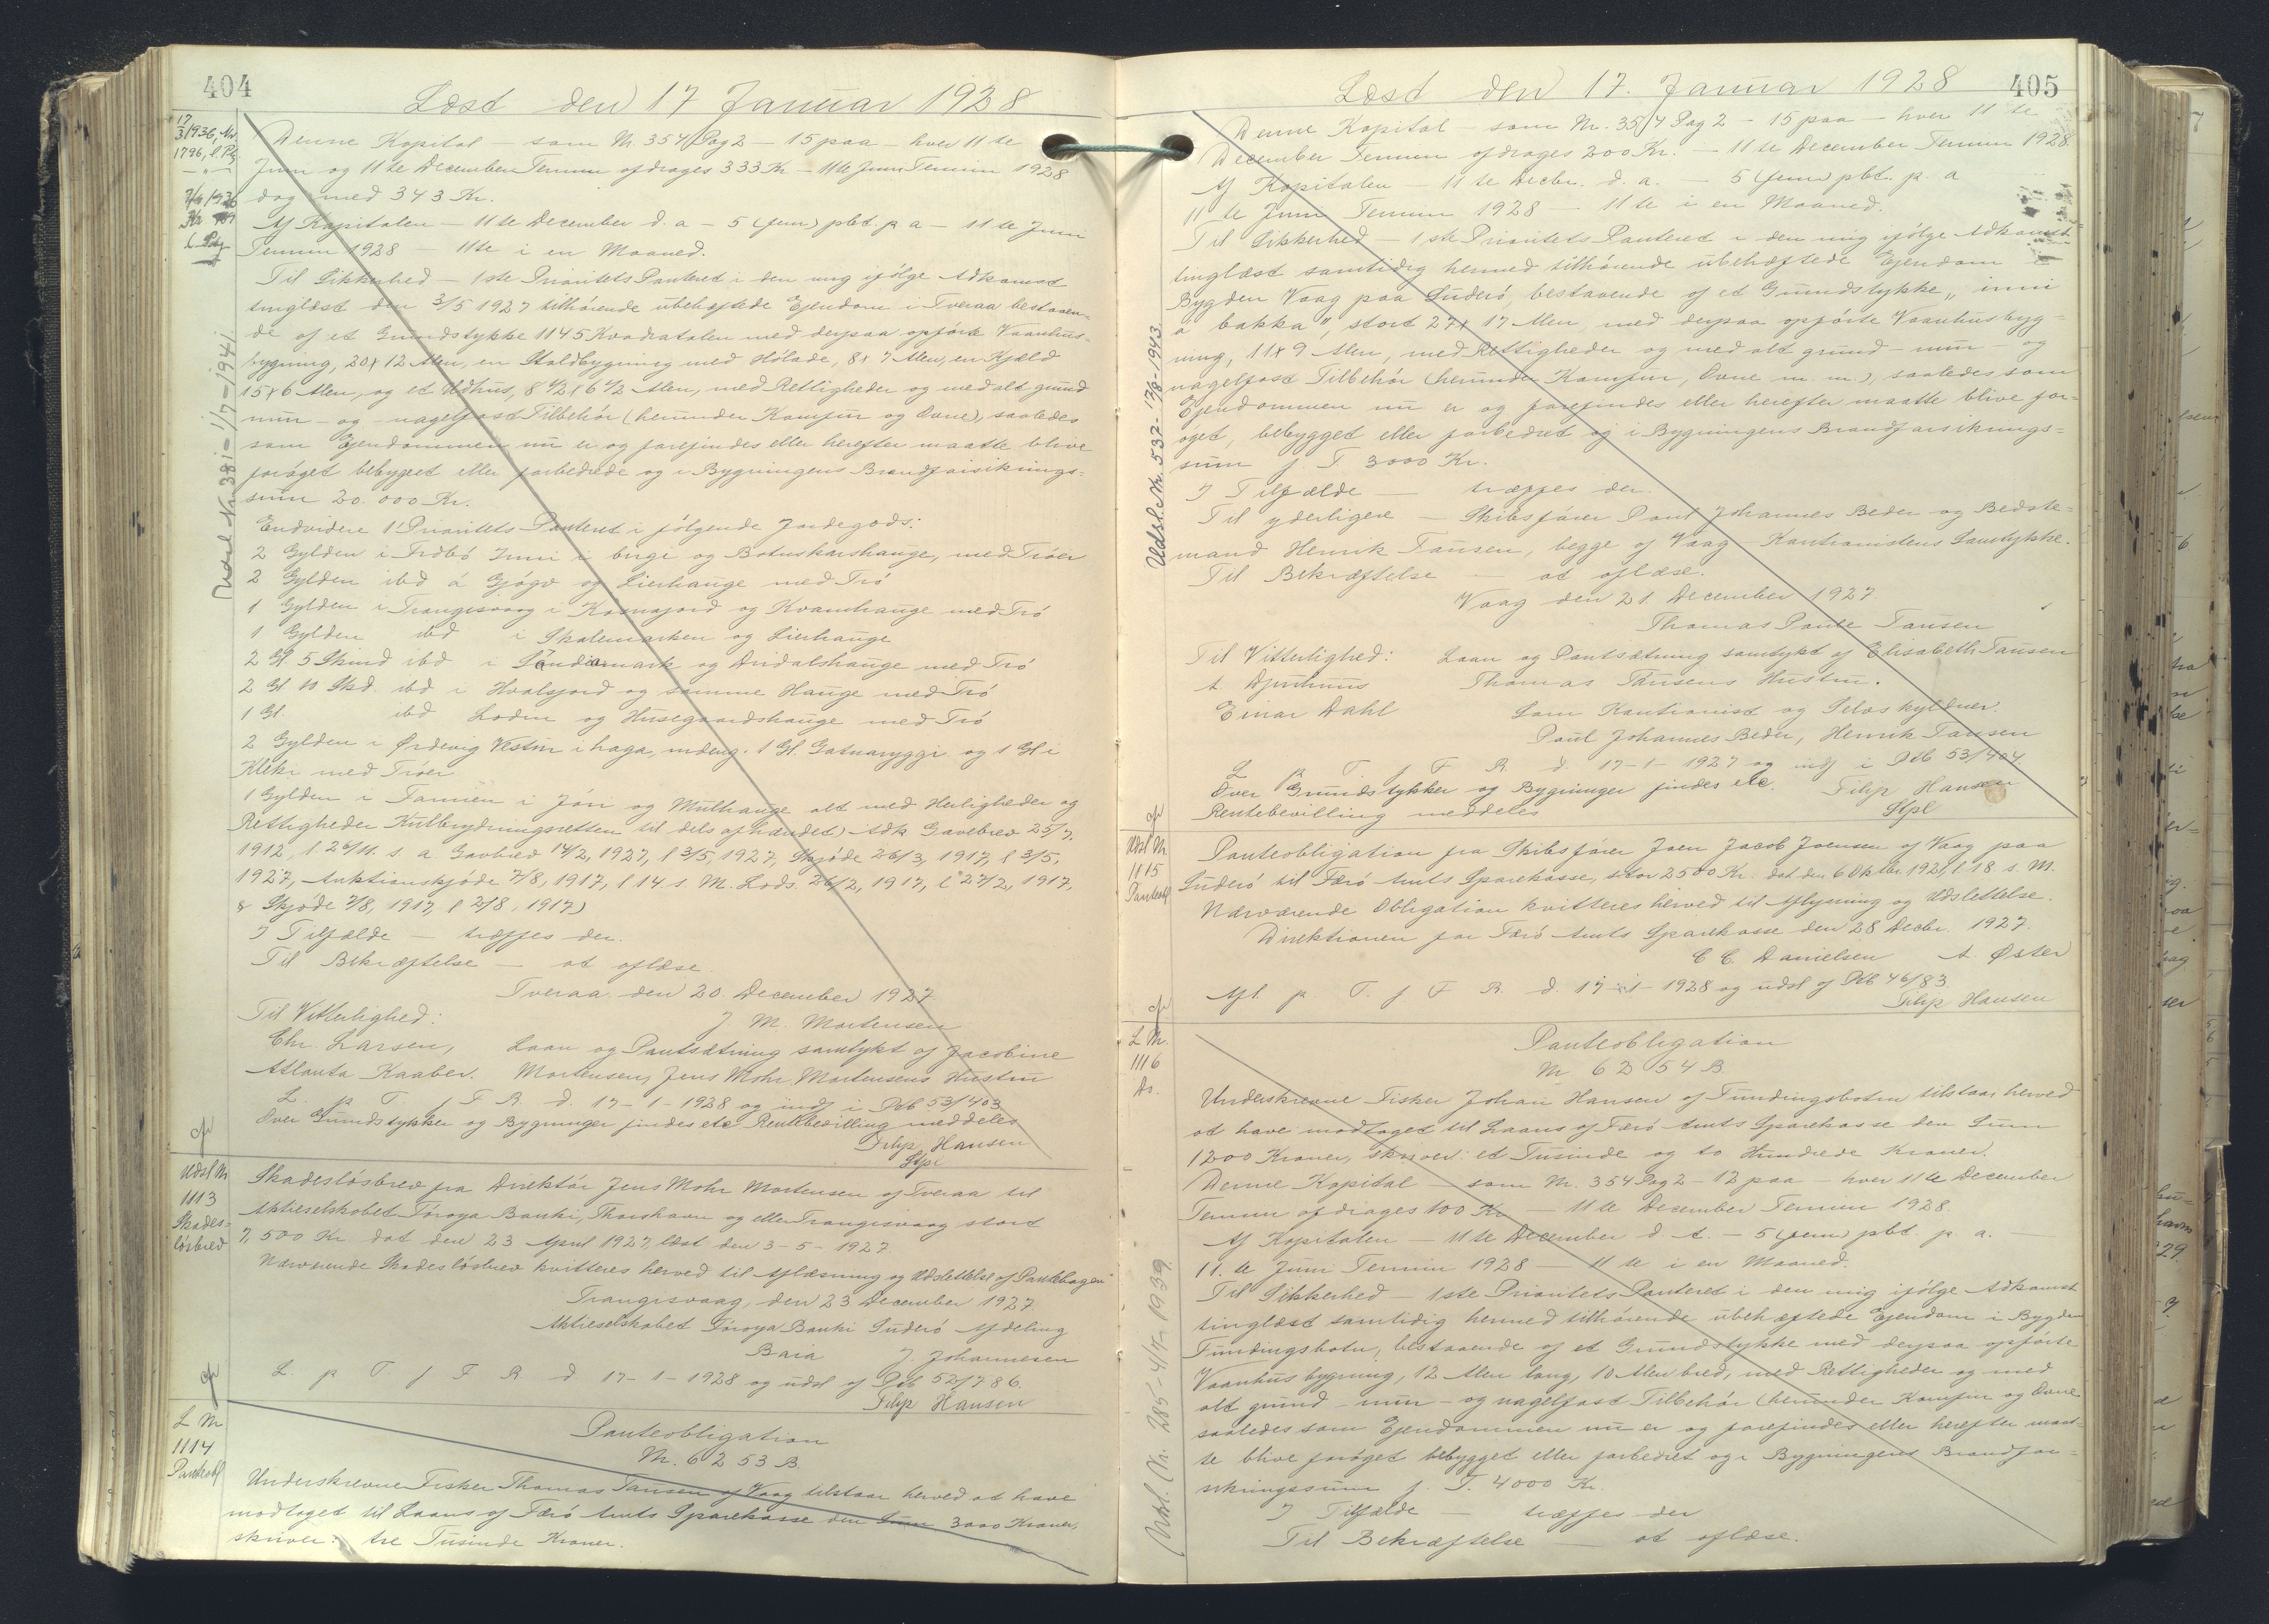 404
Læst den 17 Januar 1928
17/3 1936, Nr.
1796, l. Ptg
Denne Kapital – som Nr. 354 Pag 2 – 15 paa hver 11 te
Juni og 11 te December Termin afdrages 333 Kr – 11te Juni Termin 1928
dog med 343 Kr.
Af Kapitalen – 11 te December d. a – 5 (fem) pct. p a – 11 te Juni
Termin 1928 – 11te i en Maaned.
Til Sikkerhed – 1ste Prioritets Panteret i den mig ifölge Adkomst
tinglæst den 3/5 1927 tilhörende übehæftede Ejendom i Tveraa bestaaen-
de af et Grundstykke 1145 Kvadratalen med derpaa opförte Vaanhus-
bygning, 20 x 12 Alen, en Staldbygning med Hölade, 8 x 7 Alen, en Kjæld
15 x 6 Alen, og et Udhus, 8 1/2 x 6 1/2 Alen, med Rettigheder og med alt grund
mür – og nagelfast Tilbehör (herunder Komfür og Ovne), saaledes
som Ejendommen nü er og forefindes eller herefter maatte blive
foröget bebygget eller forbedrede og i Bygningens Brandforsikrings-
süm 20.000 Kr.
Endvidere 1' Prioritets Panteret i fölgende Jordegods:
2 Gylden i Frodbö Inni i birgi og Botnskarshauge, med Tröer
2 Gylden ibd á Gjógv og Lierhauge med Trö
1 Gylden i Trangisvaag i Kornajord og Kvamhauge med Trö
1 Gylden ibd i Skalemarken og Lierhauge
2 Gl. 5 Skind ibd i Sandiamark og Dridalshauge med Trö
2 Gl 10 Skd. ibd i Hvalsjord og samme Hauge med Trö
1 Gl. ibd Lodin og Husegaardshauge med Trö
2 Gylden i Ørdevig Vestur i haga, undtag. 1 Gl. Gatnaryggi og 1 Gl i
Kleki med Tröer
1 Gylden i Famien i Jöri og Mulhauge alt med Herligheder og
Rettigheder Kulbrydningsretten til dels afhændet) Adk Gavebrev 25/7.
1912, l 26/11. s. a Gavbrev 14/2, 1927, l 3/5, 1927, Skjöde 26/3, 1917, l 3/5,
1927, Auktionskjöde 7/8, 1917, l 14 s. M. Lods. 26/2, 1917, l 27/2, 1917,
& Skjöde 2/8, 1917, l 2/8, 1917)
I Tilfælde – træffes der.
Til Bekræftelse – at aflæse.
Tveraa den 20 December 1927
Til Vitterlighed: J. M. Mortensen
Chr. Larsen, Laan og Pantsætning samtykt af Jacobine
Atlanta Kaaber. Mortensen, Jens Mohr Mortensens Hustru
L. p. T. f F R. d. 17-1-1928 og indf i Pdb 53/403
Over Grundstykker og Bygninger findes etc Rentebevilling meddeles
Filip Hansen
Stpl
Udsl Nr
1113
Skades-
lösbrev
Skadeslösbrev fra Direktör Jens Mohr Mortensen af Tveraa til
Aktieselskabet Föroya Banki, Thorshavn og eller Trangisvaag stort
7,500 Kr dat den 23 April 1927, læst den 3-5-1927.
Nærværende Skadeslösbrev kvitteres herved til Aflæsning og Udslettelse af Pantebogen
Trangisvaag, den 23 December 1927
Aktieselskabet Föroya Banki Suderö Afdeling
J. Johannesen
L. p T. f F R d 17-1-1928 og udsl af Pdb 52/786.
Filip Hansen
L Nr
1114
Panteobl
Panteobligation
Nr. 6253 B.
Underskrevne Fisker Thomas Tausen af Vaag tilstaar herved at have
modtaget til Laans af Færö Amts Sparekasse den Sum 3000 Kroner,
skriver: tre Tusinde Kroner.
Udsl Nr 381-1/7-1941
405
Læst den 17. Januar 1928
Denne Kapital – som Nr. 354 Pag 2 – 15 paa – hver 11 te
December Termin afdrages 200 Kr. – 11 te December Termin 1928.
Af Kapitalen – 11 te Decbr. d. a. – 5 (fem) pct. p. a
11 te Juni Termin 1928 – 11 te i en Maaned.
Til Sikkerhed – 1ste Prioritets Panteret i den mig ifölge Adkomst
tinglæst samtidig hermed tilhörende übehæftede Ejendom i
Bygden Vaag paa Suderö, bestaaende af et Grundstykke „inni
á bakka", stort 27 x 17 Alen, med derpaa opförte Vaanhusbyg-
ning, 11 x 9 Alen, med Rettigheder og med alt grund – mür – og
nagelfast Tilbehör (herunder Komfur, Ovne m. m.), saaledes som
Ejendommen nü er og forefindes eller herefter maatte blive for-
öget, bebygget eller forbedret og i Bygningens Brandforsikrings-
süm f. T. 3000 Kr.
I Tilfælde – træffes der.
Til yderligere – Skibsförer Poul Johannes Beder og Bedste-
mand Henrik Tausen, begge af Vaag – Kautionistens Samtykke.
Til Bekræftelse – at aflæse.
Vaag den 21. December 1927.
Thomas Paule Tausen
Til Vitterlighed: Laan og Pantsætning samtykt af Elisabeth Tausen
A. Djurhuus Thomas Tausens Hustru.
Einar Dahl Som Kautionist og Selvskyldner.
Poul Johannes Beder, Henrik Tausen
L p T f F R. d. 17-1-1927 og indf i Pdb 53/404.
Over Grundstykker og Bygninger findes etc. Filip Hansen
Rentebevilling meddeles Stpl
Udsl. Nr. 532-13/8-1943.
Udsl Nr
1115
Panteobl
Panteobligation fra Skibsförer Joen Jacob Joensen af Vaag paa
Suderö til Færö Amts Sparekasse, stor 2500 Kr. dat den 6 Oktbr. 1921, l 18 s. M.
Nærværende Obligation kvitteres herved til Aflysning og Udslettelse.
Direktionen for Færö Amts Sparekasse den 28 Decbr. 1927.
C C. Danielsen A. Øster
Afl. p. T. f F R. d. 17-1-1928 og udsl af Pdb 46/83.
Filip Hansen
L Nr.
1116
Do.
Panteobligation
Nr 6254 B.
Underskrevne Fisker Johan Hansen af Fundingsbotn tilstaar herved
at have modtaget til Laans af Færö Amts Sparekasse den Sum
1200 Kroner, skriver: et Tusinde og to Hundrede Kroner.
Denne Kapital – som Nr. 354 Pag 2 – 12 paa – hver 11 te December
Termin afdrages 100 Kr – 11 te December Termin 1928.
Af Kapitalen – 11 te December d. A. – 5 (fem) pct. p. a.
11. te Juni Termin 1928 – 11 te i en Maaned.
Til Sikkerhed – 1ste Prioritets Panteret i den mig ifölge Adkomst
tinglæst samtidig hermed tilhörende übehæftede Ejendom i Bygden
Fundingsbotn, bestaaende af et Grundstykke med derpaa opförte
Vaanhus bygning, 12 Alen lang, 10 Alen bred, med Rettigheder og med
alt grund – mur – og nagelfast Tilbehör (herunder Komfur og Ovne
saaledes som Ejendommen nü er og forefindes eller herefter maat-
te blive foröget bebygget eller forbedret og i Bygningens Brandfor-
sikringssum f. T. 4000 Kr.
I Tilfælde – træffes der
Til Bekræftelse – at aflæse.
Udsl. Nr. 285-4/7-1939.